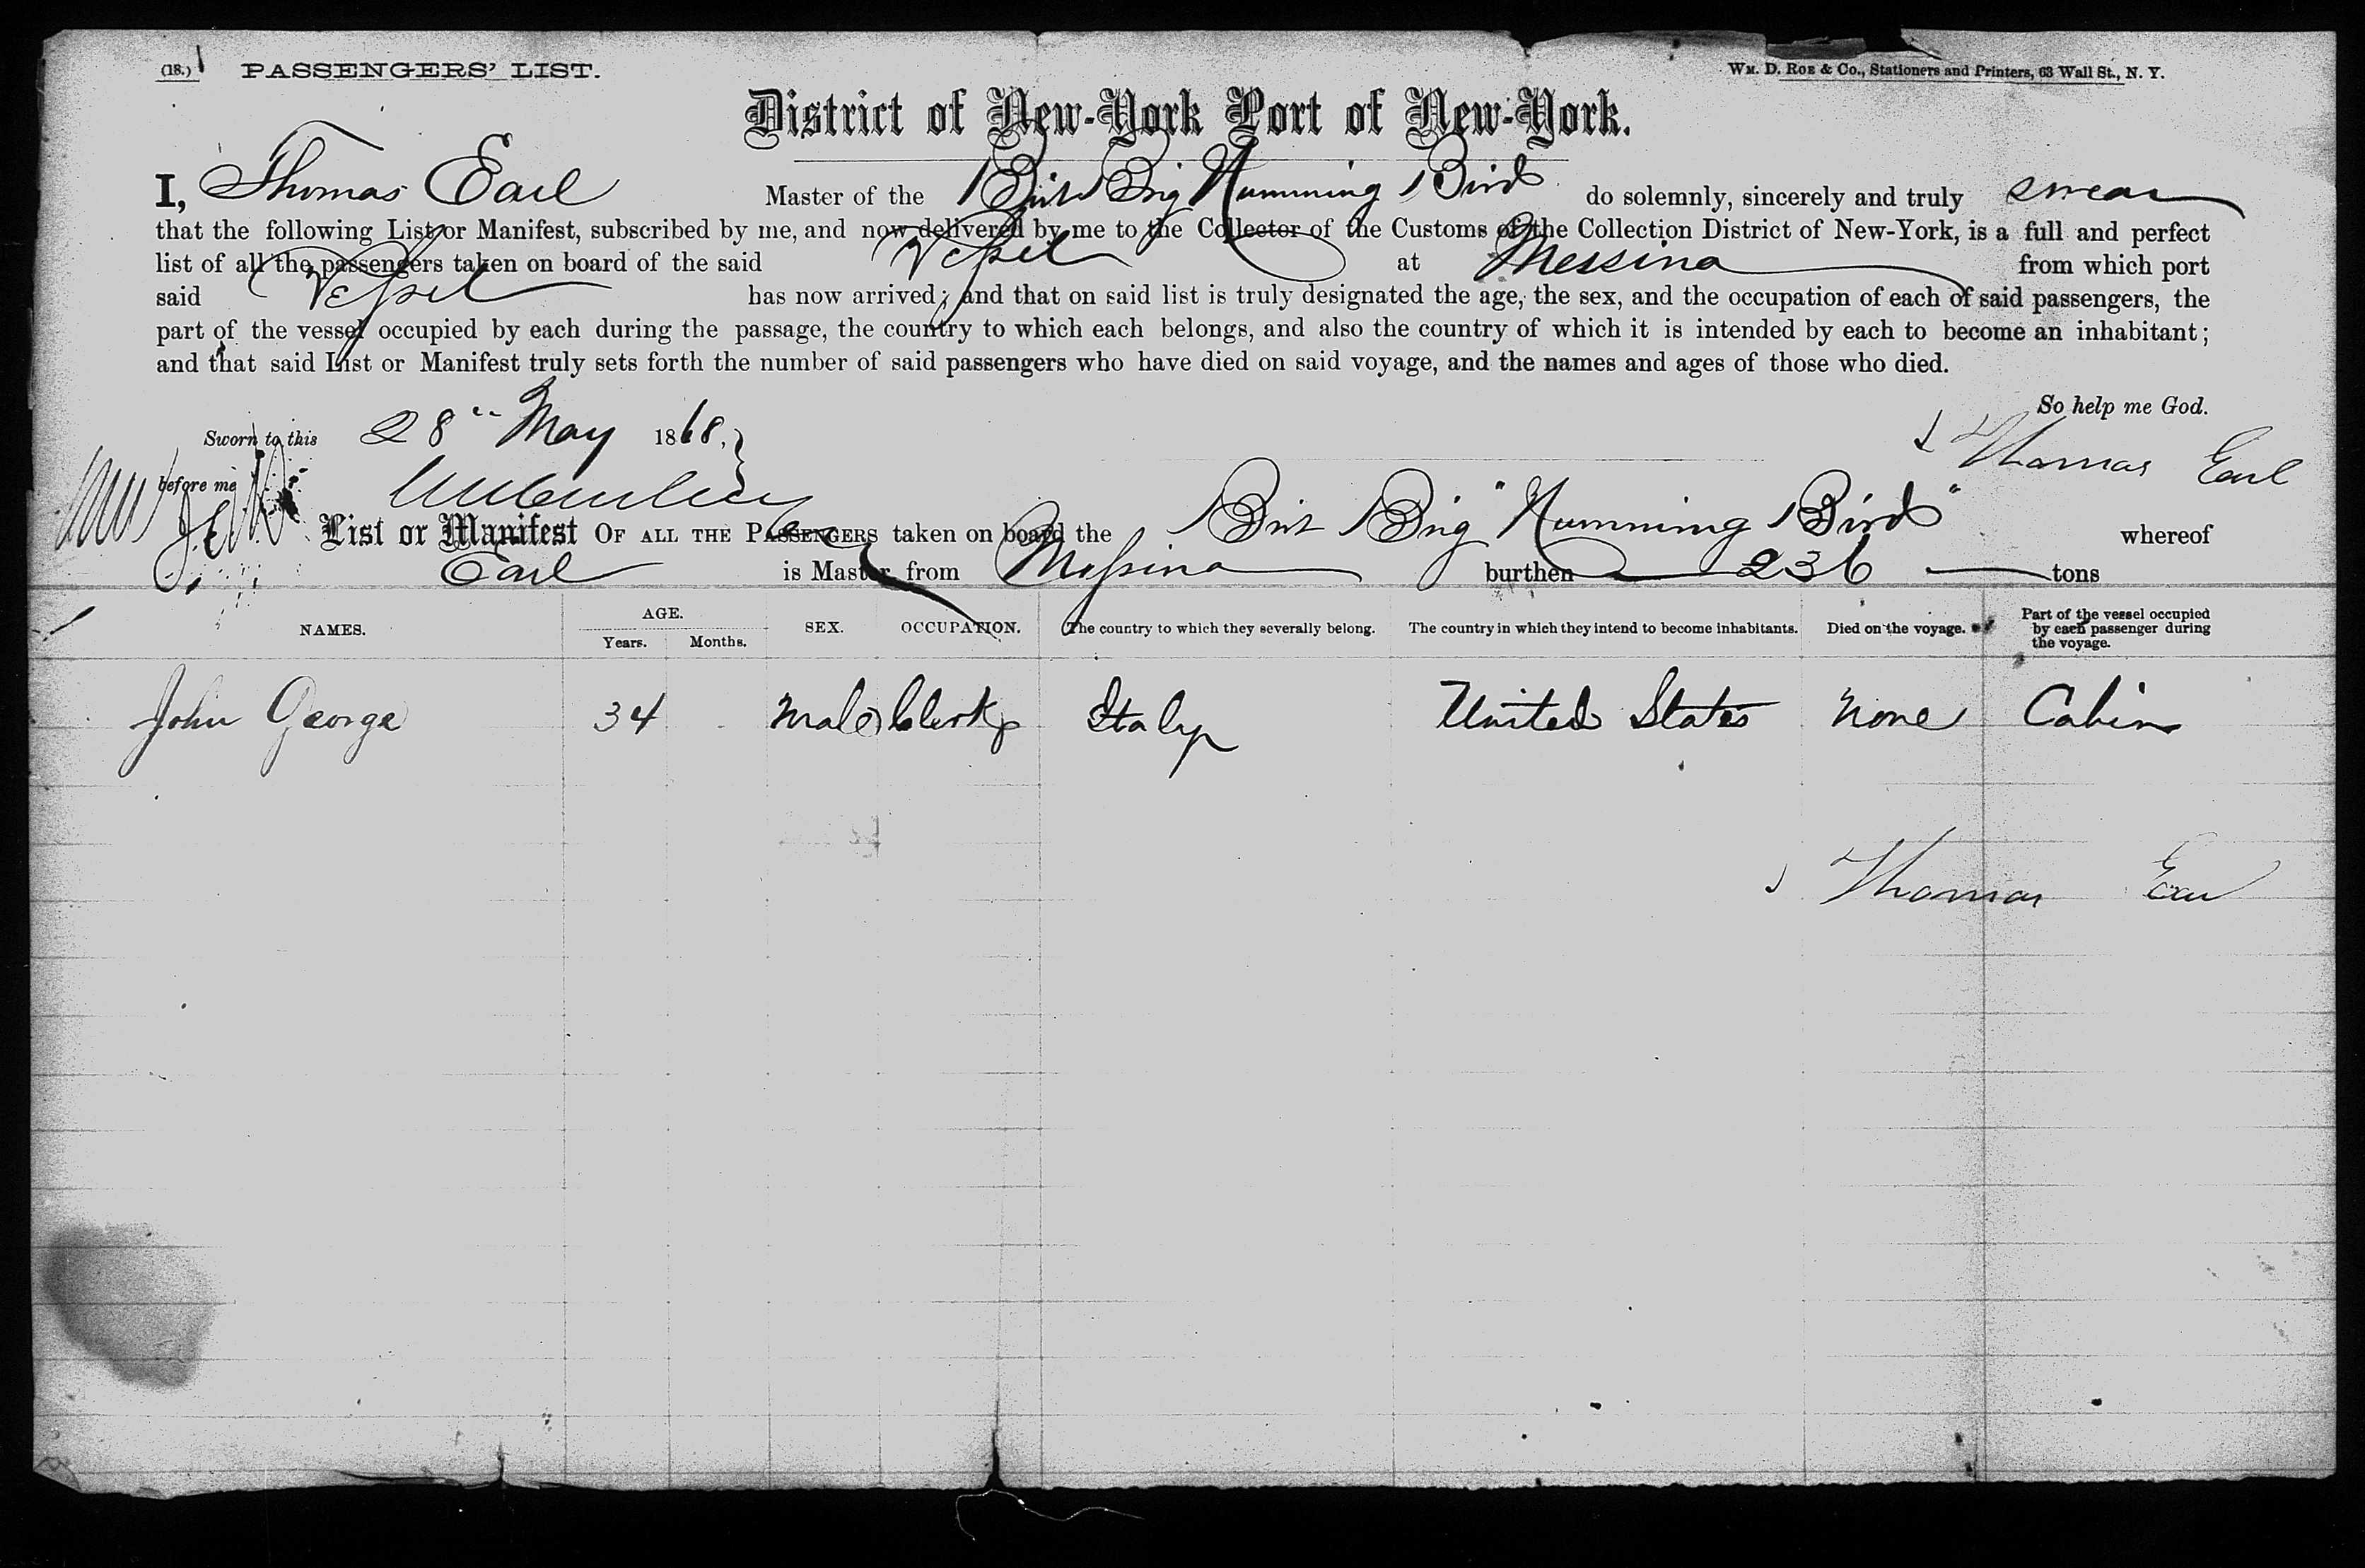 (18.) PASSENGERS' LIST.
Wm. D. Roe & Co., Stationers and Printers, 63 Wall St., N. Y.
District of New-York Port of New-York.
I, Thomas Earl Master of the Brit Brig Humming Bird do solemnly, sincerely and truly swear
that the following List or Manifest, subscribed by me, and now delivered by me to the Collector of the Customs of the Collection District of New-York, is a full and perfect
list of all the passengers taken on board of the said Vessel at Messina from which port
said Vessel has now arrived; and that on said list is truly designated the age, the sex, and the occupation of each of said passengers, the
part of the vessel occupied by each during the passage, the country to which each belongs, and also the country of which it is intended by each to become an inhabitant;
and that said List or Manifest truly sets forth the number of said passengers who have died on said voyage, and the names and ages of those who died.
So help me God.
Sworn to this 28" May 1868,
Thomas Earl
before me
List or Manifest OF ALL THE PASSENGERS taken on board the Brit Brig "Humming Bird" whereof
Earl is Master, from Messina burthen 236 tons
NAMES. AGE. Years. Months. SEX. OCCUPATION. The country to which they severally belong. The country in which they intend to become inhabitants. Died on the voyage. Part of the vessel occupied by each passenger during the voyage.
John George 34 Male Clerk Italy United States None Cabin
Thomas Earl